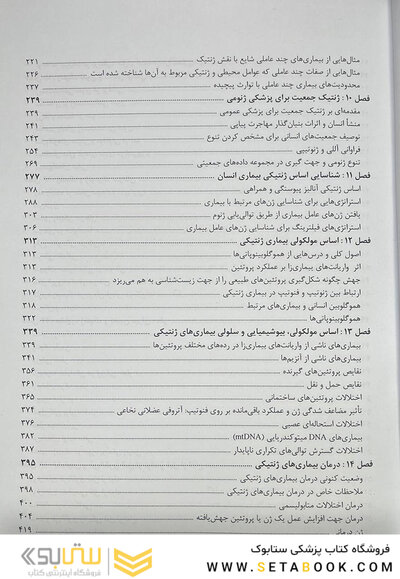 مثال‌هایی از بیماری‌های چند عاملی شایع با نقش ژنتیک ۲۲۱
مثال‌هایی از صفات چند عاملی که عوامل محیطی و ژنتیکی مربوط به آن‌ها شناخته شده است ۲۲۶
محدودیت‌های بیماری چند عاملی با توارث پیچیده ۲۳۷
فصل ۱۰: ژنتیک جمعیت برای پزشکی ژنومی ۲۳۹
مقدمه‌ای بر ژنتیک جمعیت برای پزشکی عمومی ۲۳۹
منشأ انسان و اثرات بنیان‌گذار مهاجرت پیاپی ۲۴۱
توصیف جمعیت‌های انسانی برای مشخص کردن تنوع ۲۴۲
فراوانی آللی و ژنوتیپی ۲۵۴
تنوع ژنومی و جهت گیری در مجموعه داده‌های جمعیتی ۲۶۹
فصل ۱۱: شناسایی اساس ژنتیکی بیماری انسان ۲۷۷
اساس ژنتیکی آنالیز پیوستگی و همراهی ۲۷۸
استراتژی‌هایی برای شناسایی ژن‌های مرتبط با بیماری ۲۸۸
یافتن ژن‌های عامل بیماری از طریق توالی‌یابی ژنوم ۳۰۳
استراتژی‌های فیلترینگ برای شناسایی ژن‌های عامل بیماری ۳۰۶
فصل ۱۲: اساس مولکولی بیماری ژنتیکی ۳۱۳
اصول کلی و درس‌هایی از هموگلوبینوپاتی‌ها ۳۱۳
اثر واریانت‌های بیماری‌زا بر عملکرد پروتئین ۳۱۳
جهش چگونه شکل‌گیری پروتئین‌های طبیعی را از جهت زیست‌شناسی به هم می‌ریزد ۳۱۶
ارتباط بین ژنوتیپ و فنوتیپ در بیماری ژنتیکی ۳۱۷
هموگلوبین انسانی و بیماری‌های مرتبط ۳۱۸
هموگلوبینوپاتی‌ها ۳۲۲
فصل ۱۳: اساس مولکولی، بیوشیمیایی و سلولی بیماری‌های ژنتیکی ۳۳۹
بیماری‌های ناشی از واریانت‌های بیماری‌زا در رده‌های مختلف پروتئین‌ها ۳۳۹
بیماری‌های ناشی از آنزیم‌ها ۳۴۱
نقایص پروتئین‌های گیرنده ۳۵۶
نقایص حمل و نقل ۳۶۱
اختلالات پروتئین‌های ساختمانی ۳۶۵
تأثیر مضاعف شدگی ژن و عملکرد باقی‌مانده بر روی فنوتیپ: آتروفی عضلانی نخاعی ۳۷۴
اختلالات استحاله‌ای عصبی ۳۷۶
بیماری‌های DNA میتوکندریایی (mtDNA) ۳۸۲
اختلالات گسترش توالی‌های تکراری ناپایدار ۳۸۷
فصل ۱۴: درمان بیماری‌های ژنتیکی ۳۹۵
وضعیت کنونی درمان بیماری‌های ژنتیکی ۳۹۵
ملاحظات خاص در درمان بیماری‌های ژنتیکی ۳۹۸
درمان اختلالات متابولیسمی ۴۰۰
درمان جهت افزایش عمل یک ژن یا پروتئین جهش‌یافته ۴۰۴
ژن درمانی ۴۱۹
فروشگاه کتاب پزشکی ستابوک
WWW.SETABOOK.COM
ستابوک
فروشگاه اینترنتی کتاب